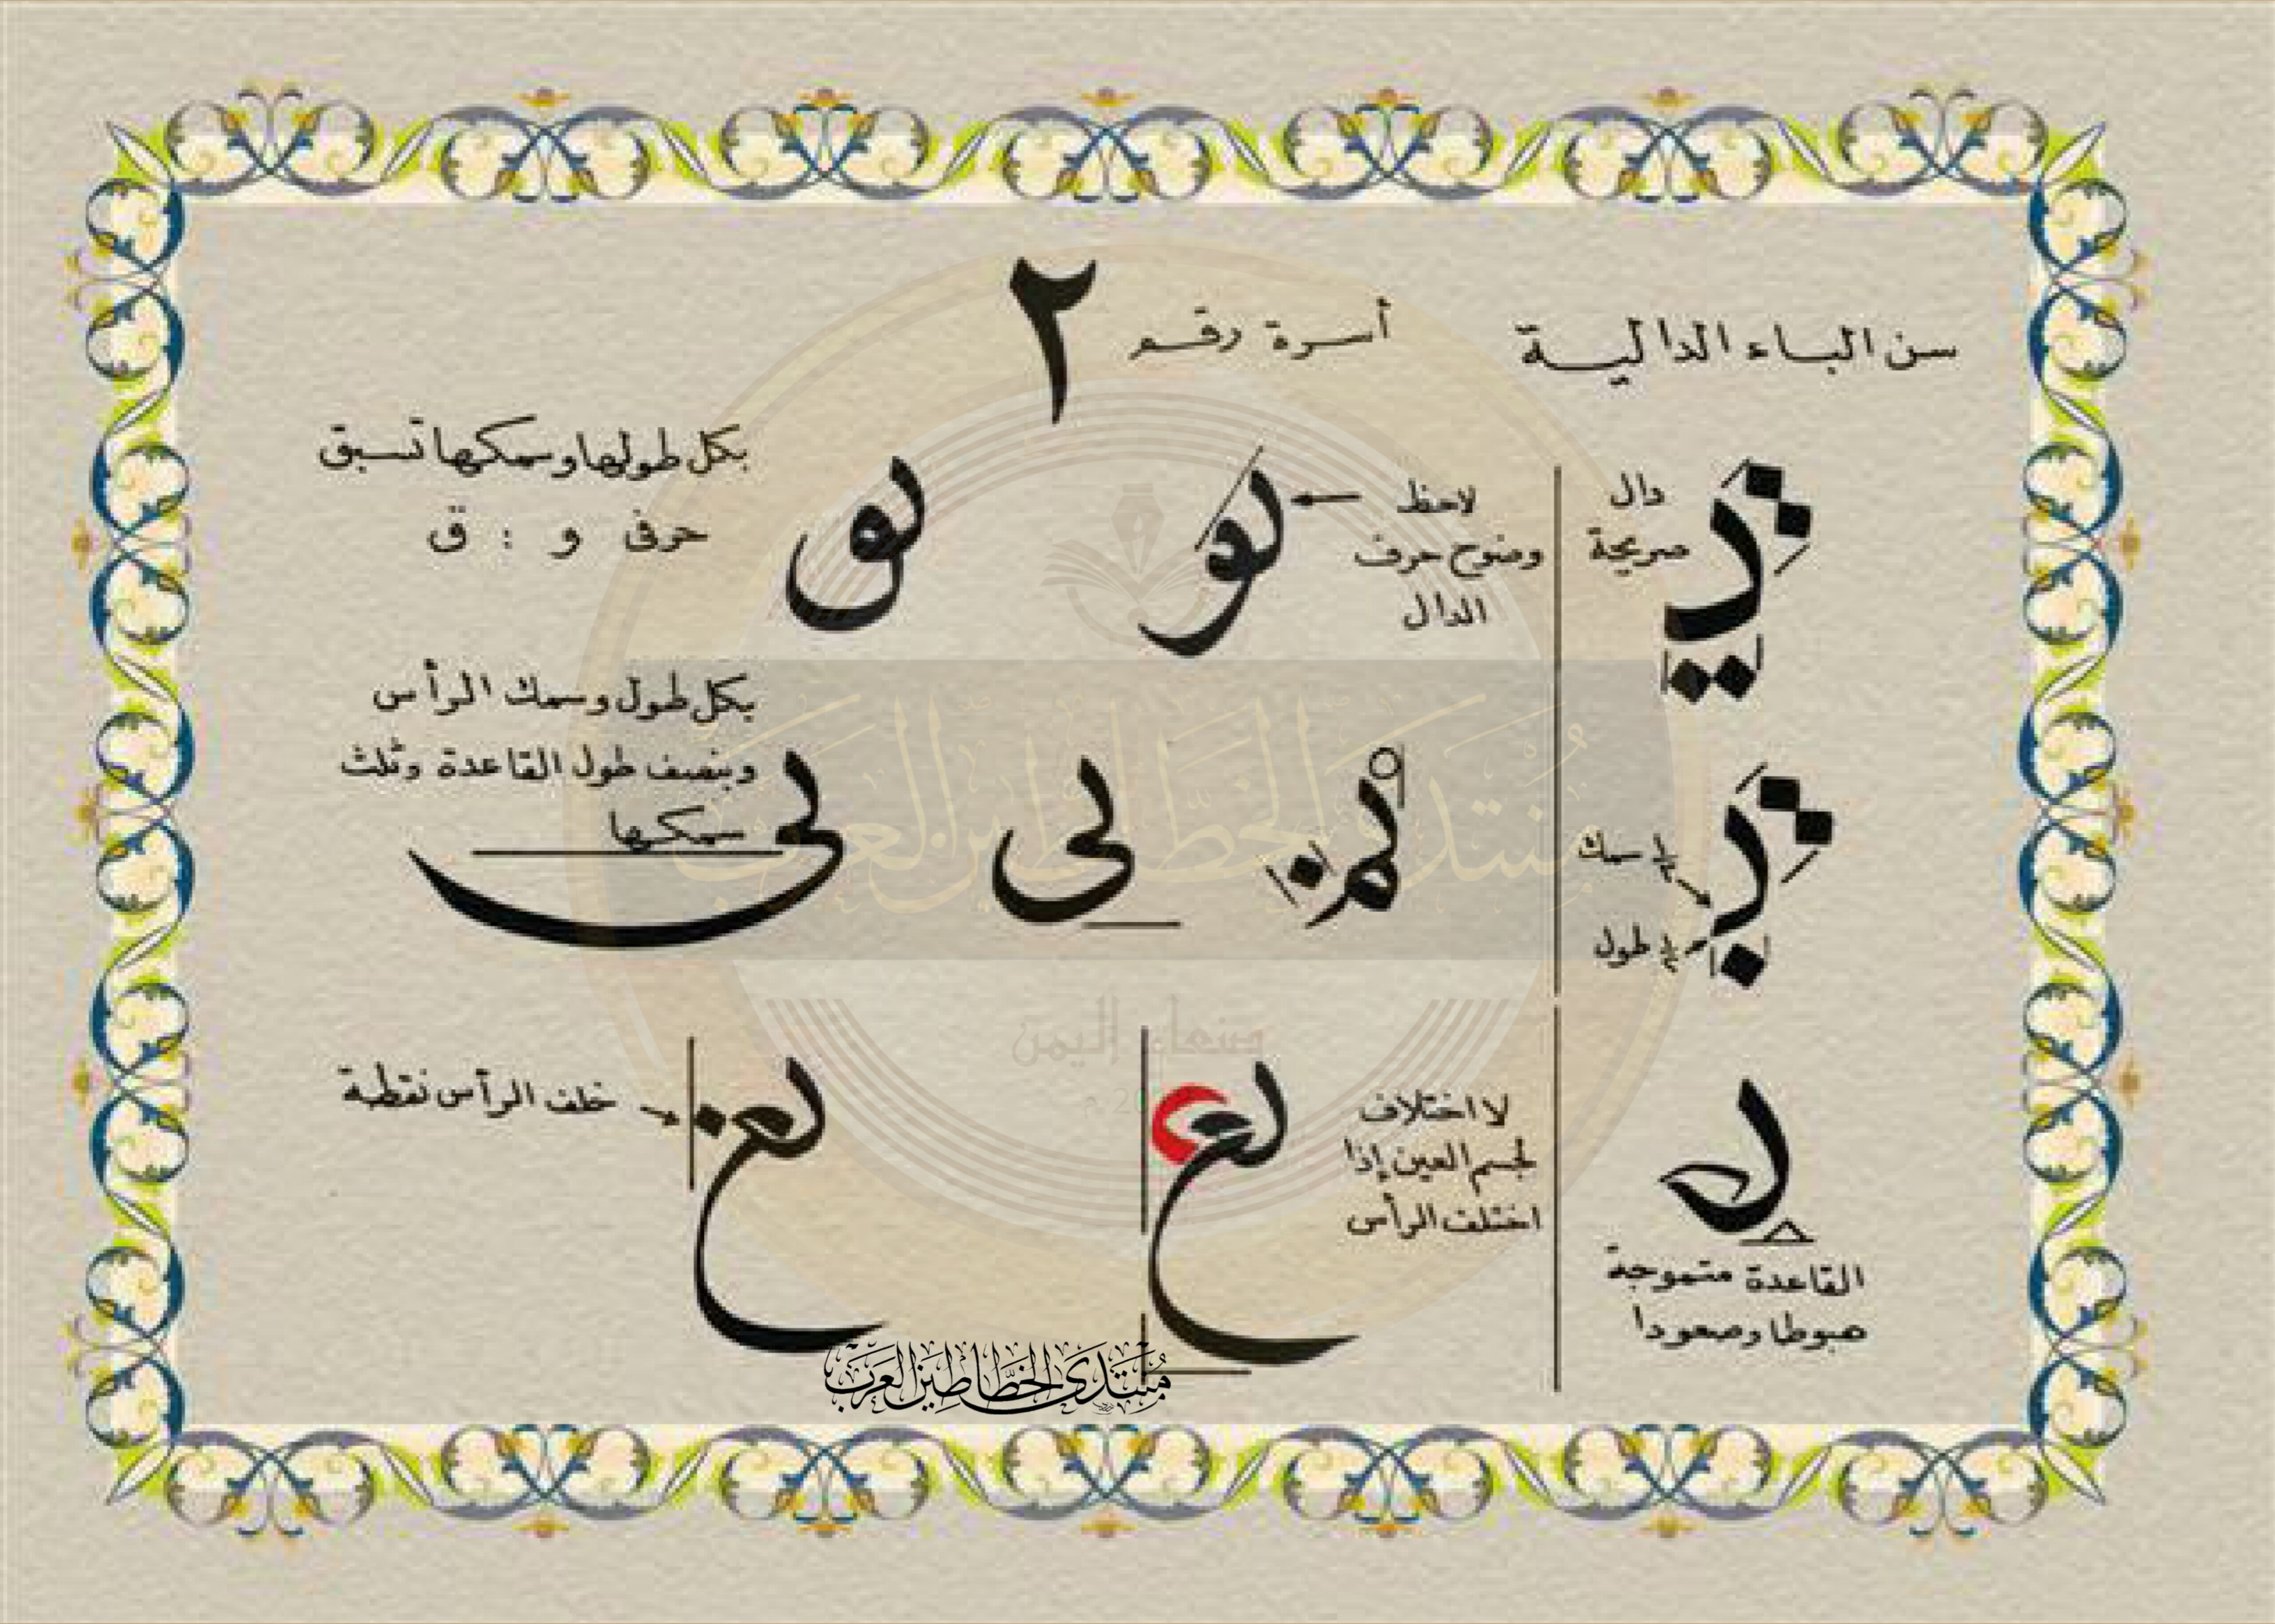 سن الباء الدالية
أسرة رقم ٢
دال
صريحة
لاحظ
وضوح حرف
الدال
بكل طولها وسمكها تسبق
حرفي و : ق
بو
بق
½ سمك
½ طول
بكل طول وسمك الرأس
وبنصف طول القاعدة وثلث
سمكها
القاعدة متموجة
هبوطا وصعودا
لا اختلاف
لجسم العين إذا
اختلفت الرأس
خلف الرأس نقطة
منتدى الخطاطين العرب
صنعاء اليمن
منتدى الخطاطين العرب